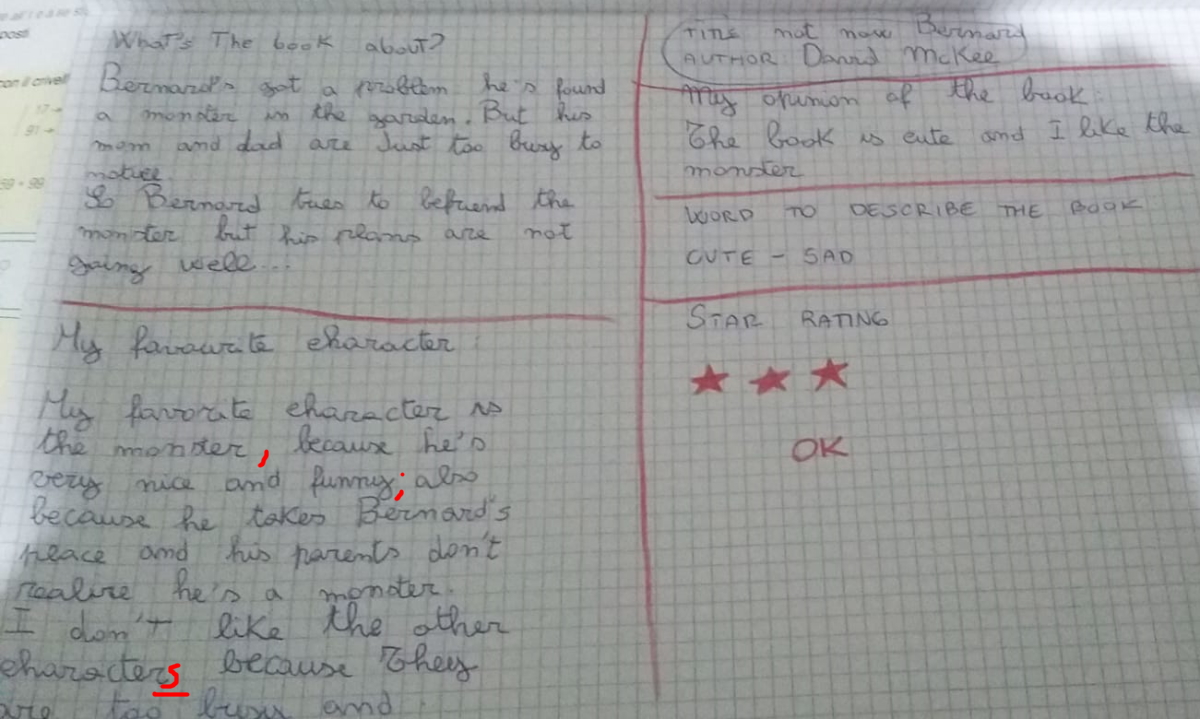 What's The book about?
Bernard's got a problem he's found
a monster in the garden. But his
mom and dad are Just too busy to
notice.
So Bernard tries to befriend the
monster but his plans are not
going well...
My favourite character:
My favorite character is
the monster, because he's
very nice and funny; also
because he takes Bernard's
place and his parents don't
realise he's a monster.
I don't like the other
characters because They
are too busy and
TITLE not now Bernard
AUTHOR: David McKee
My opinion of the book:
The book is cute and I like the
monster
WORD TO DESCRIBE THE BOOK
CUTE - SAD
STAR RATING
OK